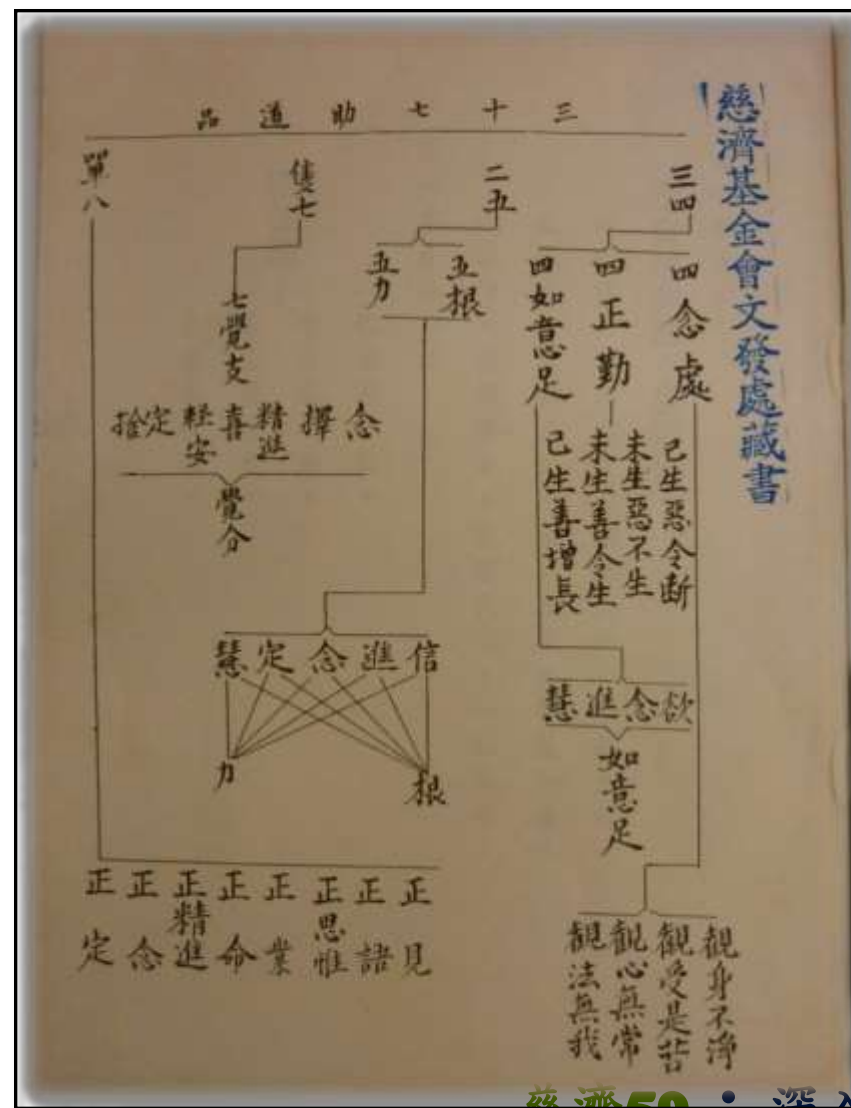 慈濟基金會文發處藏書
三十七助道品
三四
四念處
四正勤
四如意足
已生惡令斷
未生惡不生
未生善令生
已生善增長
欲念進慧
如意足
觀身不淨
觀受是苦
觀心無常
觀法無我
二五
五根
五力
信進念定慧
根
力
隻七
七覺支
念
擇
精進
喜
輕安
定
捨
覺分
單八
正見
正語
正思惟
正業
正命
正精進
正念
正定
慈濟50